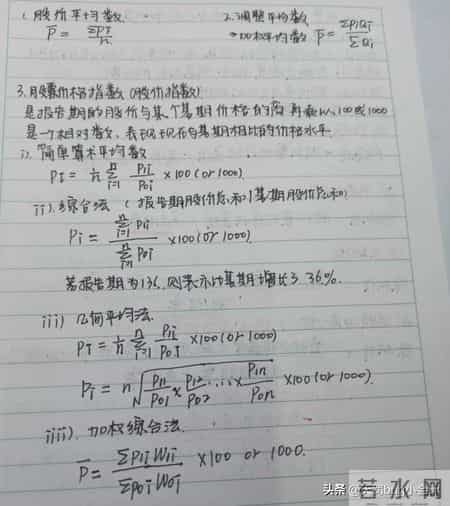 1. 股价平均数
P̄ = ΣPi / n
2. 调整平均数
→加权平均数 P̄ = ΣPiQi / ΣQi
3. 股票价格指数(股价指数)
是报告期的股价与某个基期价格的商再乘以100或1000
是一个相对指数，表现现在与基期相比的价格水平
i). 简单算术平均数
PI = 1/n Σ(i=1 to n) P1i/P0i ×100 (or 1000)
ii). 综合法 (报告期股价总和/基期股价总和)
Pi = Σ(i=1 to n) P1i / Σ(i=1 to n) P0i ×100 (or 1000)
若报告期为136, 则表示比基期增长了36%.
iii) 几何平均法.
PI = 1/n Σ(i=1 to n) P1i/P0i ×100 (or 1000)
Pi = n√(P11/P01 × P12/P02 ... × P1n/P0n) ×100 (or 1000).
iiii). 加权综合法.
P̄ = ΣP1iW1i / ΣP0iW0i ×100 or 1000.
若水网
头条